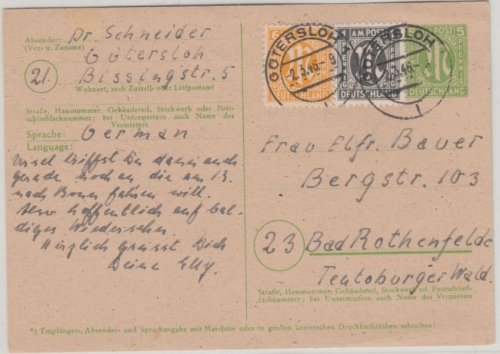 Absender: Dr. Schneider
(Vor- u. Zuname)
Gütersloh
21. Bissingstr. 5
Wohnort, auch Zustell- oder Leitpostamt
Straße, Hausnummer, Gebäudeteil, Stockwerk oder Post-
schließfachnummer; bei Untermietern auch Name des
Vermieters
Sprache: German
Language:
triffst Du dann auch
gerade noch an die am 13.
nach Bonn fahren will.
hoffentlich auf bal-
diges Wiedersehen
Herzlich grüsst Dich
Deine Elly.
GÜTERSLOH
AM POST
DEUTSCHLAND
POST 5
DEUTSCHLAND
Frau Elfr. Bauer
Bergstr. 103
23 Bad Rothenfelde
Teutoburger Wald.
Straße, Hausnummer, Gebäudeteil, Stockwerk od. Postschließ-
fachnummer; bei Untermietern auch Name des Vermieters
*) Empfänger-, Absender- und Sprachangabe mit Maschine oder in großen lateinischen Druckbuchstaben schreiben!